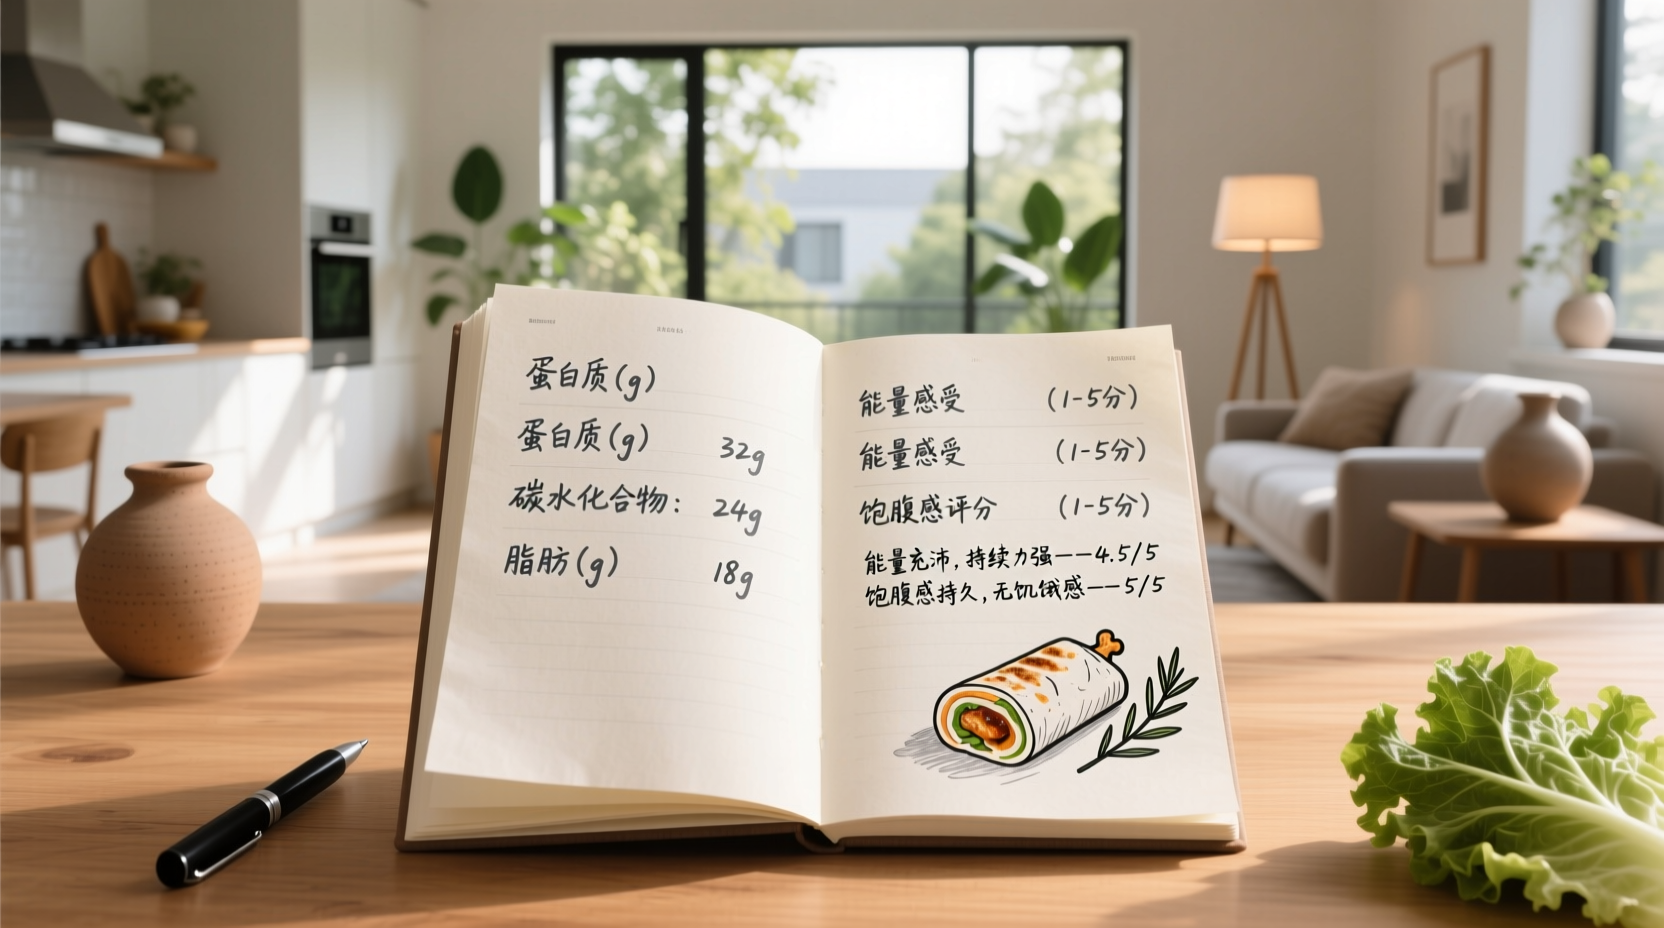 蛋白质(g)
蛋白质(g) 32g
碳水化合物: 24g
脂肪(g) 18g
能量感受 (1-5分)
能量感受 (1-5分)
饱腹感评分 (1-5分)
能量充沛,持续力强——4.5/5
饱腹感持久,无饥饿感——5/5